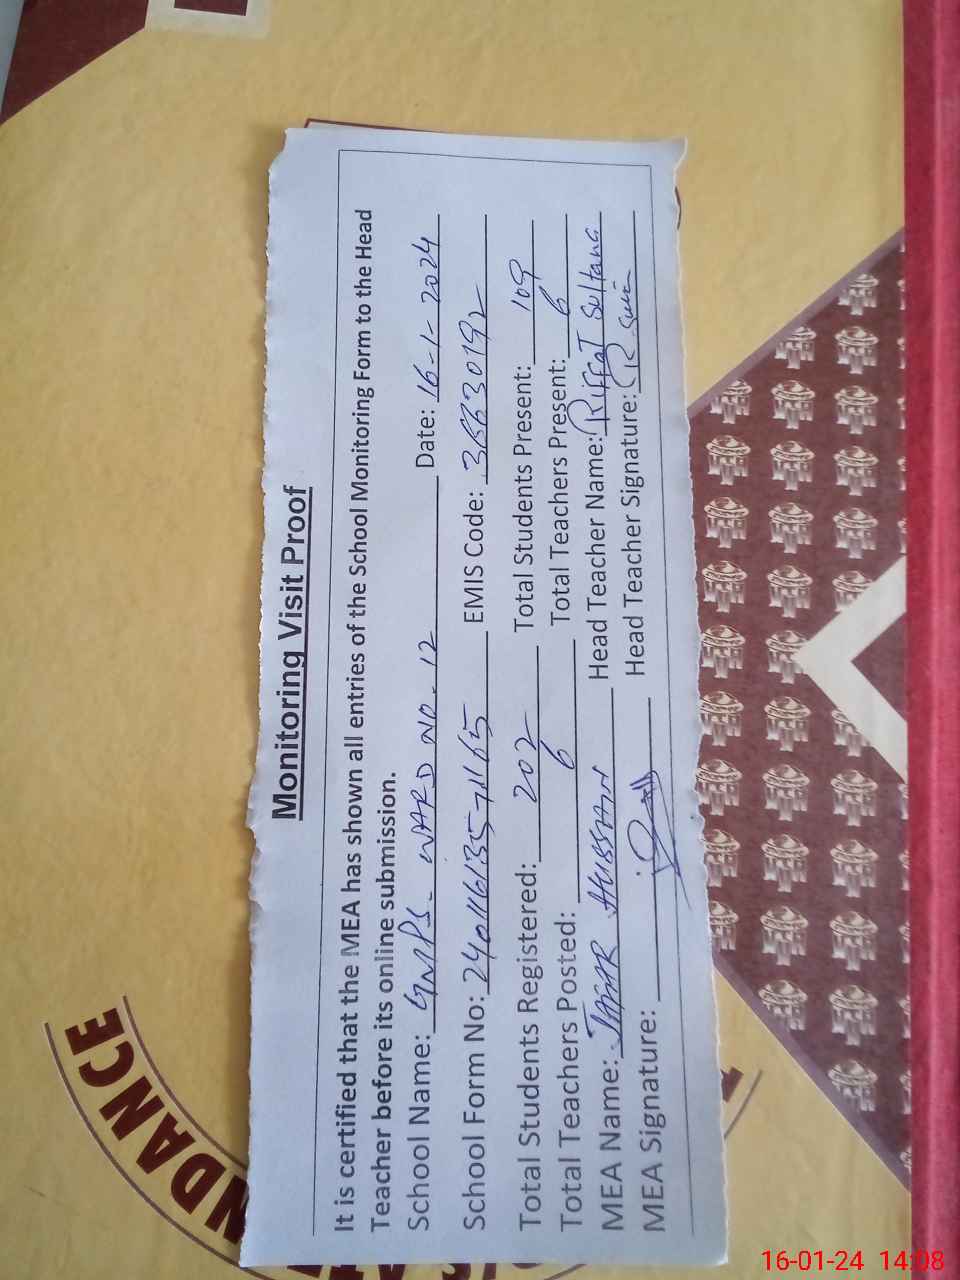 Monitoring Visit Proof
It is certified that the MEA has shown all entries of the School Monitoring Form to the Head
Teacher before its online submission.
School Name: GMPS. WARD NO. 12 Date: 16-1-2024
School Form No: EMIS Code:
Total Students Registered: 202 Total Students Present: 109
Total Teachers Posted: 6 Total Teachers Present: 6
MEA Name: JAFAR HUSSAIN Head Teacher Name: Riffat Sultana
MEA Signature: Head Teacher Signature:
NDANCE
16-01-24 14:08